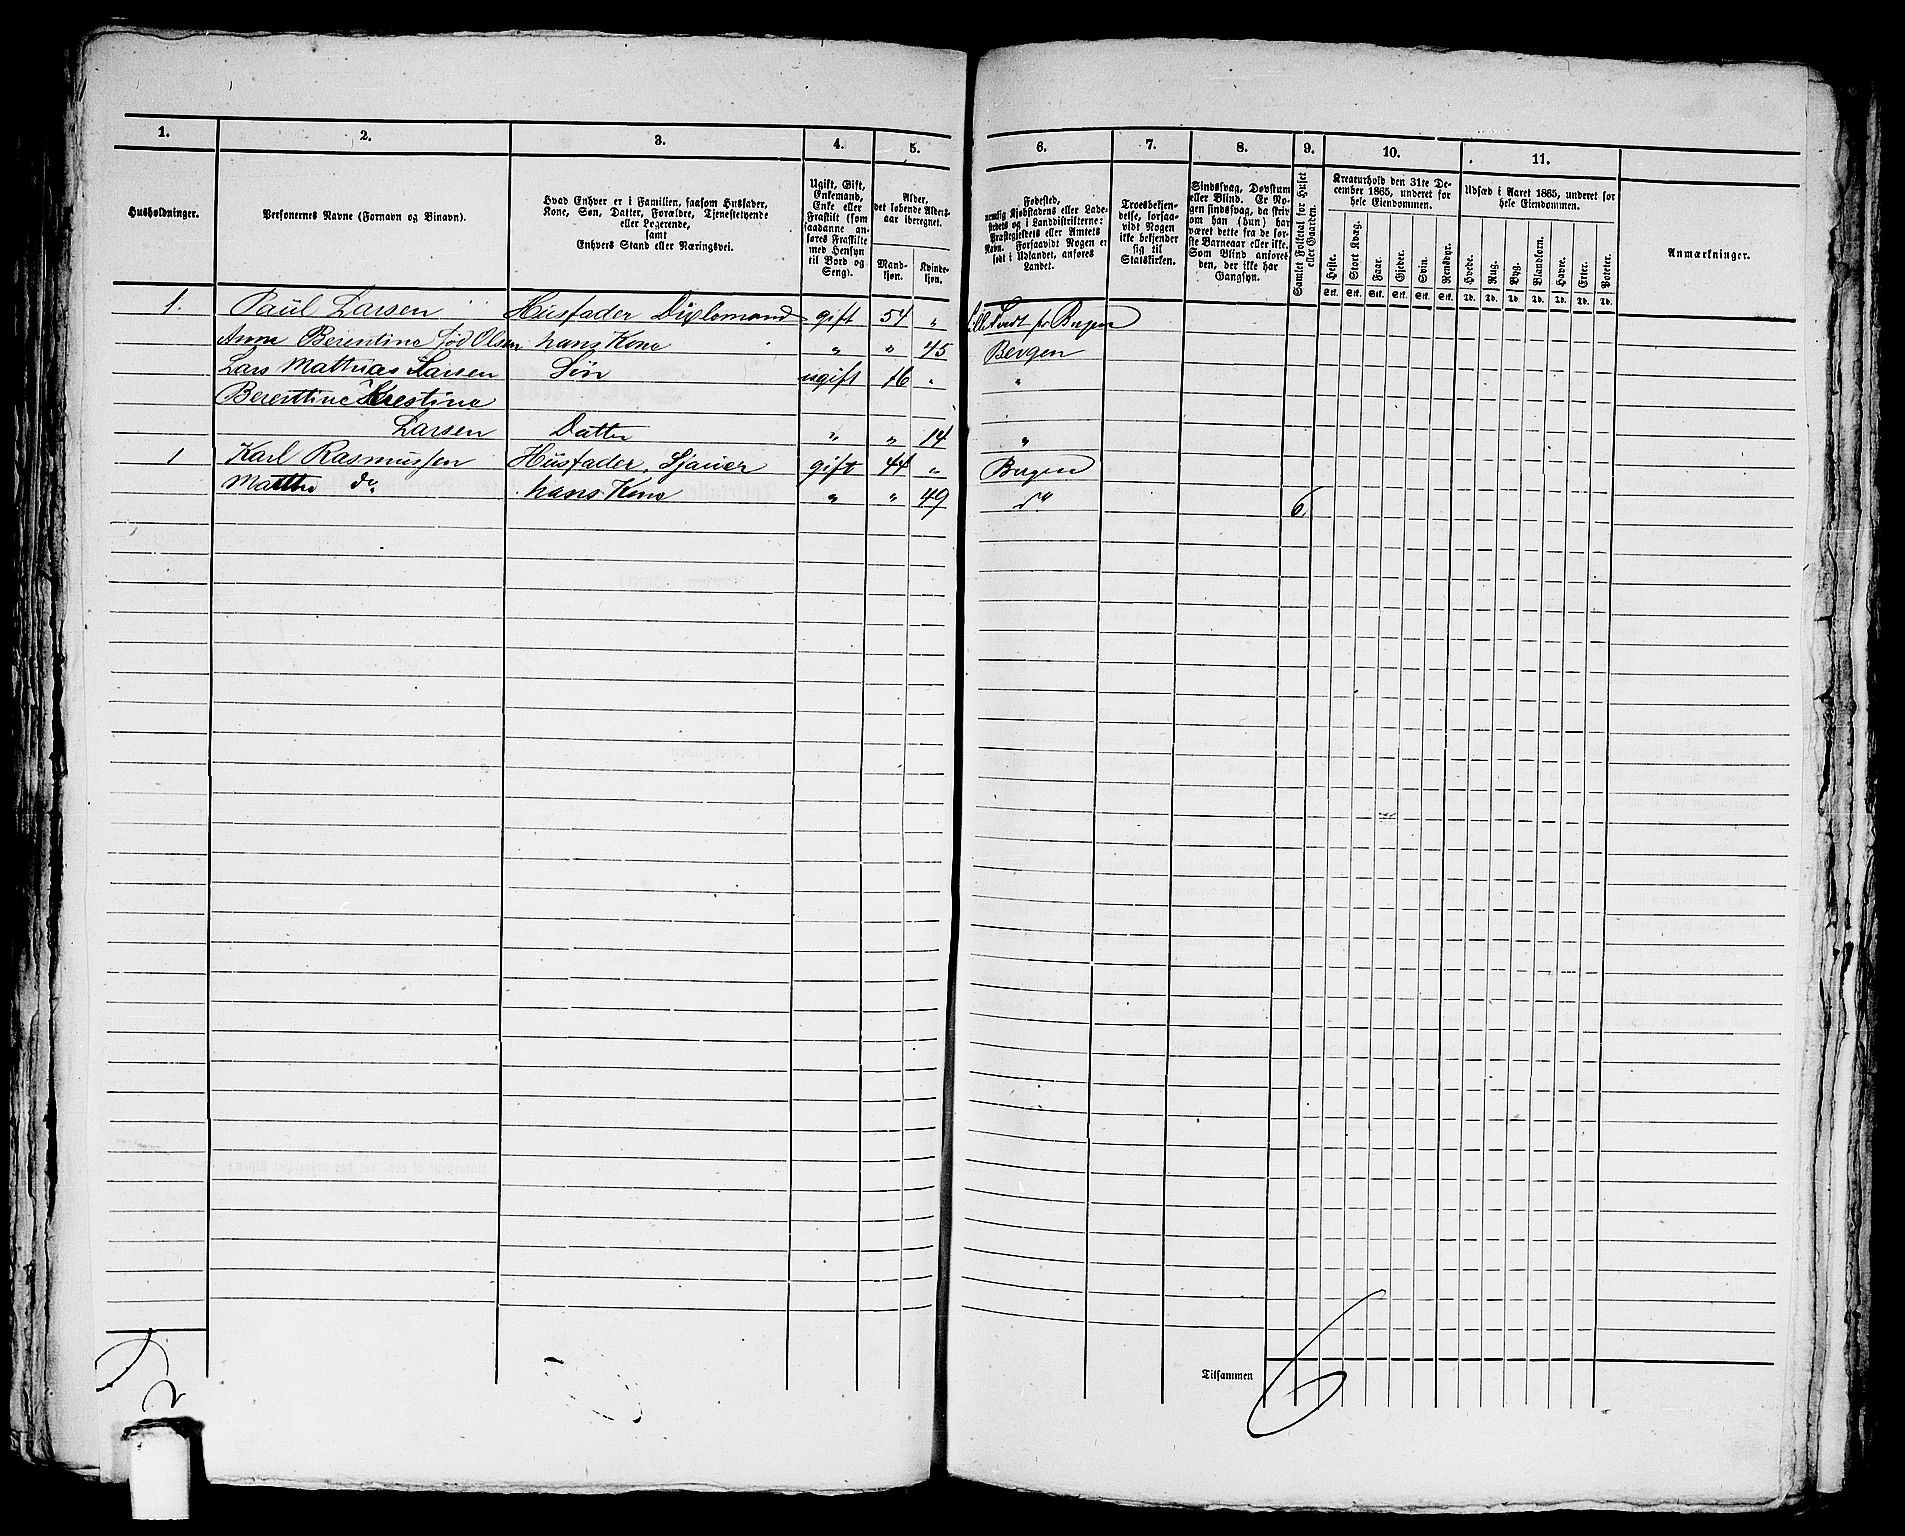 1. 2. 3. 4. 5. 6. 7. 8. 9. 10. 11.
Husholdninger.
Personernes Navne (Fornavn og Binavn).
Hvad Enhver er i Familien, saasom Husfader,
Kone, Søn, Datter, Forældre, Tjenestetyende
eller Logerende,
samt
Enhvers Stand eller Næringsvei.
Ugift, Gift,
Enkemand,
Enke eller
Fraskilt (som
saadanne an-
føres Fraskilte
med Hensyn
til Bord og
Seng).
Alder,
det løbende Alders-
aar iberegnet.
Mand-
kjøn.
Kvinde-
kjøn.
Fødested,
nemlig Kjøbstadens eller Lade-
stedets og i Landdistrikterne:
Præstegjeldets eller Amtets
Navn. Forsaavidt Nogen er
født i Udlandet, anføres
Landet.
Troesbekjen-
delse, forsaa-
vidt Nogen
ikke bekjender
sig til
Statskirken.
Sindssvag, Døvstum
eller Blind. Er No-
gen sindssvag, da skriv
om han (hun) har
været dette fra de før-
ste Barneaar eller ikke.
Som Blind anføres
den, der ikke har
Gangsyn.
Samlet Folketal for Huset
eller Gaarden.
Kreaturhold den 31te De-
cember 1865, underet for
hele Eiendommen.
Heste. Stort Kvæg. Faar. Gjeder. Svin. Rensdyr.
Stk. Stk. Stk. Stk. Stk. Stk.
Udsæd i Aaret 1865, underet for
hele Eiendommen.
Hvede. Rug. Byg. Blandkorn. Havre. Erter. Poteter.
Td. Td. Td. Td. Td. Td. Td.
Anmærkninger.
1. Paul Larsen Husfader Diplomand gift 54 "
Anna Berentine fød Olsen hans Kone " " 45 Bergen
Lars Mathias Larsen Søn ugift 16 " "
Berentine Krestine
Larsen Datter " " 14 "
1 Karl Rasmussen Husfader, Sjauer gift 44 " Bergen
Matthe do hans Kone " " 49 do 6
Tilsammen 6
2